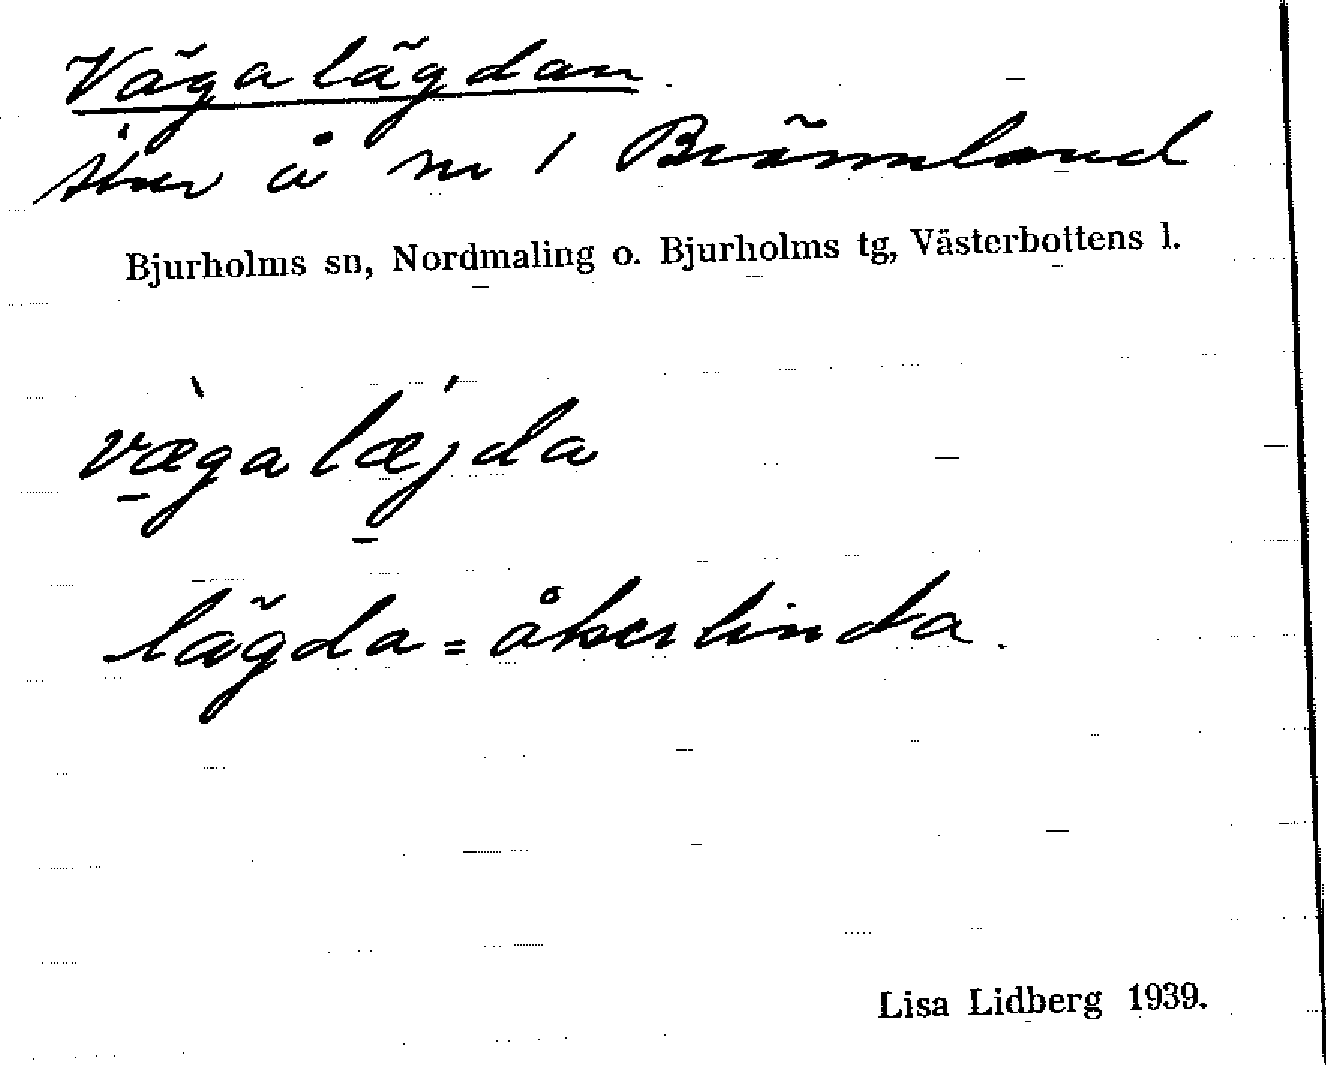 Vägalägdan.
åker å nr 1 Brännland
Bjurholms sn, Nordmaling o. Bjurholms tg, Västerbottens l.
vægalæjda
lägda = åkerlinda.
Lisa Lidberg 1939.